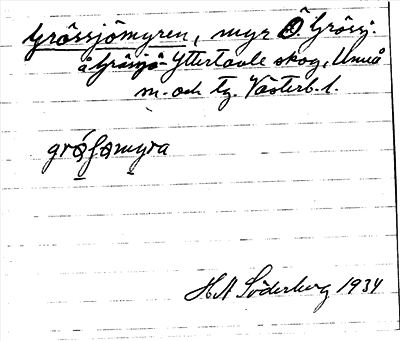 Gråssjömyren, myr Ö. Gråssj.
å Gråssjö Yttertavle skog, Umeå
m. och tg. Västerb. l.
gråfəmyra
H A Söderberg 1934